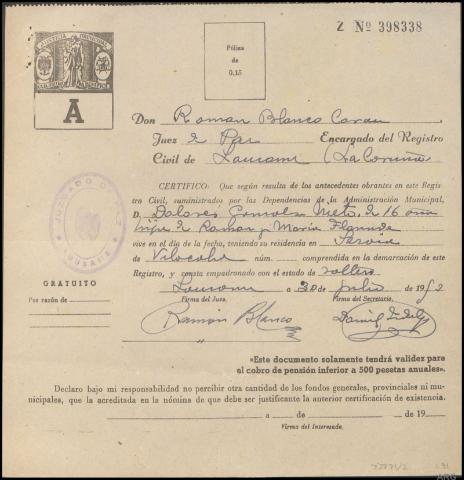 Z Nº 398338
JUSTICIA MUNICIPAL
A
Póliza
de
0,15
Don Roman Blanco
Juez de Paz Encargado del Registro
Civil de Lousame (La Coruña)
CERTIFICO: Que según resulta de los antecedentes obrantes en este Regis-
tro Civil, suministrados por las Dependencias de la Administración Municipal,
D. Dolores Gonzalez Nieto, de 16 años
hija de Ramon y Maria
vive en el día de la fecha, teniendo su residencia en
de Vilacoba núm. comprendida en la demarcación de este
Registro, y consta empadronado con el estado de soltera
Lousame a 30 de julio de 1952
Firma del Juez. Firma del Secretario.
Ramón Blanco
JUZGADO DE PAZ
LOUSAME
GRATUITO
Por razón de
«Este documento solamente tendrá validez para
el cobro de pensión inferior a 500 pesetas anuales».
Declaro bajo mi responsabilidad no percibir otra cantidad de los fondos generales, provinciales ni mu-
nicipales, que la acreditada en la nómina de que debe ser justificante la anterior certificación de existencia.
a de de 19
Firma del Interesado.
ARG